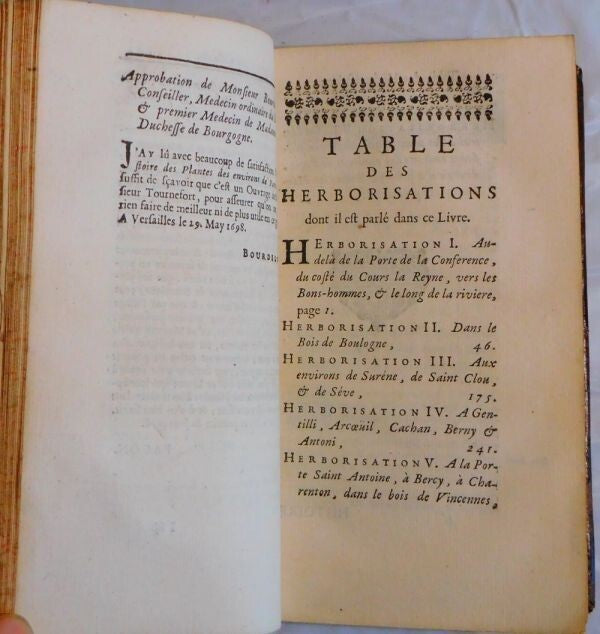 Approbation de Monsieur
Conseiller, Medecin ordinaire du
& premier Medecin de
Duchesse de Bourgogne.
J'AY lû avec beaucoup de satisfaction
stoire des Plantes des environs de
suffit de sçavoir que c'est un Ouvrage de
sieur Tournefort, pour asseurer qu'on
rien faire de meilleur ni de plus utile en ce
A Versailles le 29. May 1698.
TABLE
DES
HERBORISATIONS
dont il est parlé dans ce Livre.
HERBORISATION I. Au-
delà de la Porte de la Conference,
du costé du Cours la Reyne, vers les
Bons-hommes, & le long de la riviere,
page 1.
HERBORISATION II. Dans le
Bois de Boulogne, 46.
HERBORISATION III. Aux
environs de Surêne, de Saint Clou,
& de Séve, 175.
HERBORISATION IV. A Gen-
tilli, Arcœuil, Cachan, Berny &
Antoni, 241.
HERBORISATION V. A la Por-
te Saint Antoine, à Bercy, à Cha-
renton, dans le bois de Vincennes,